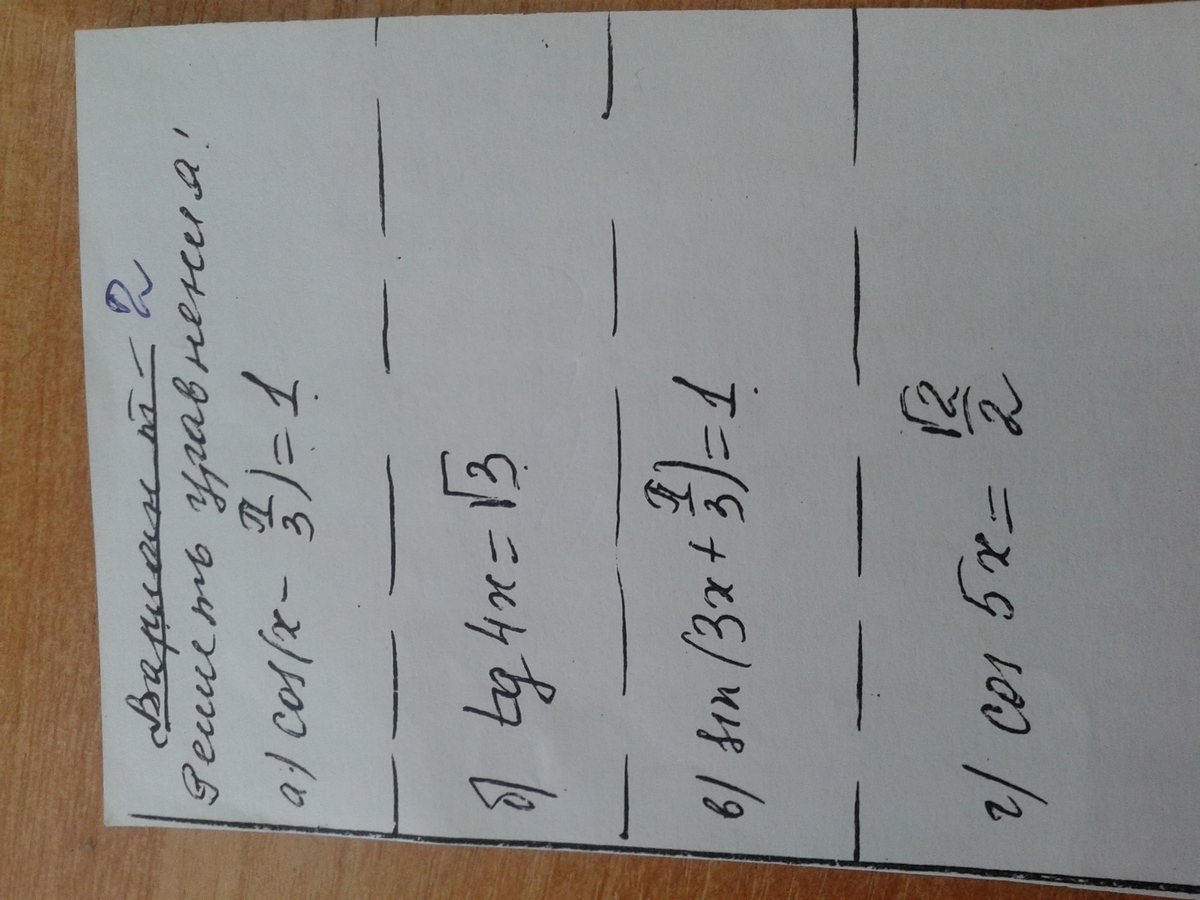 Вариант - 2
Решить уравнения:
а) cos(x - π/3) = 1
б) tg 4x = √3
в) sin(3x + π/3) = 1
г) cos 5x = √2/2